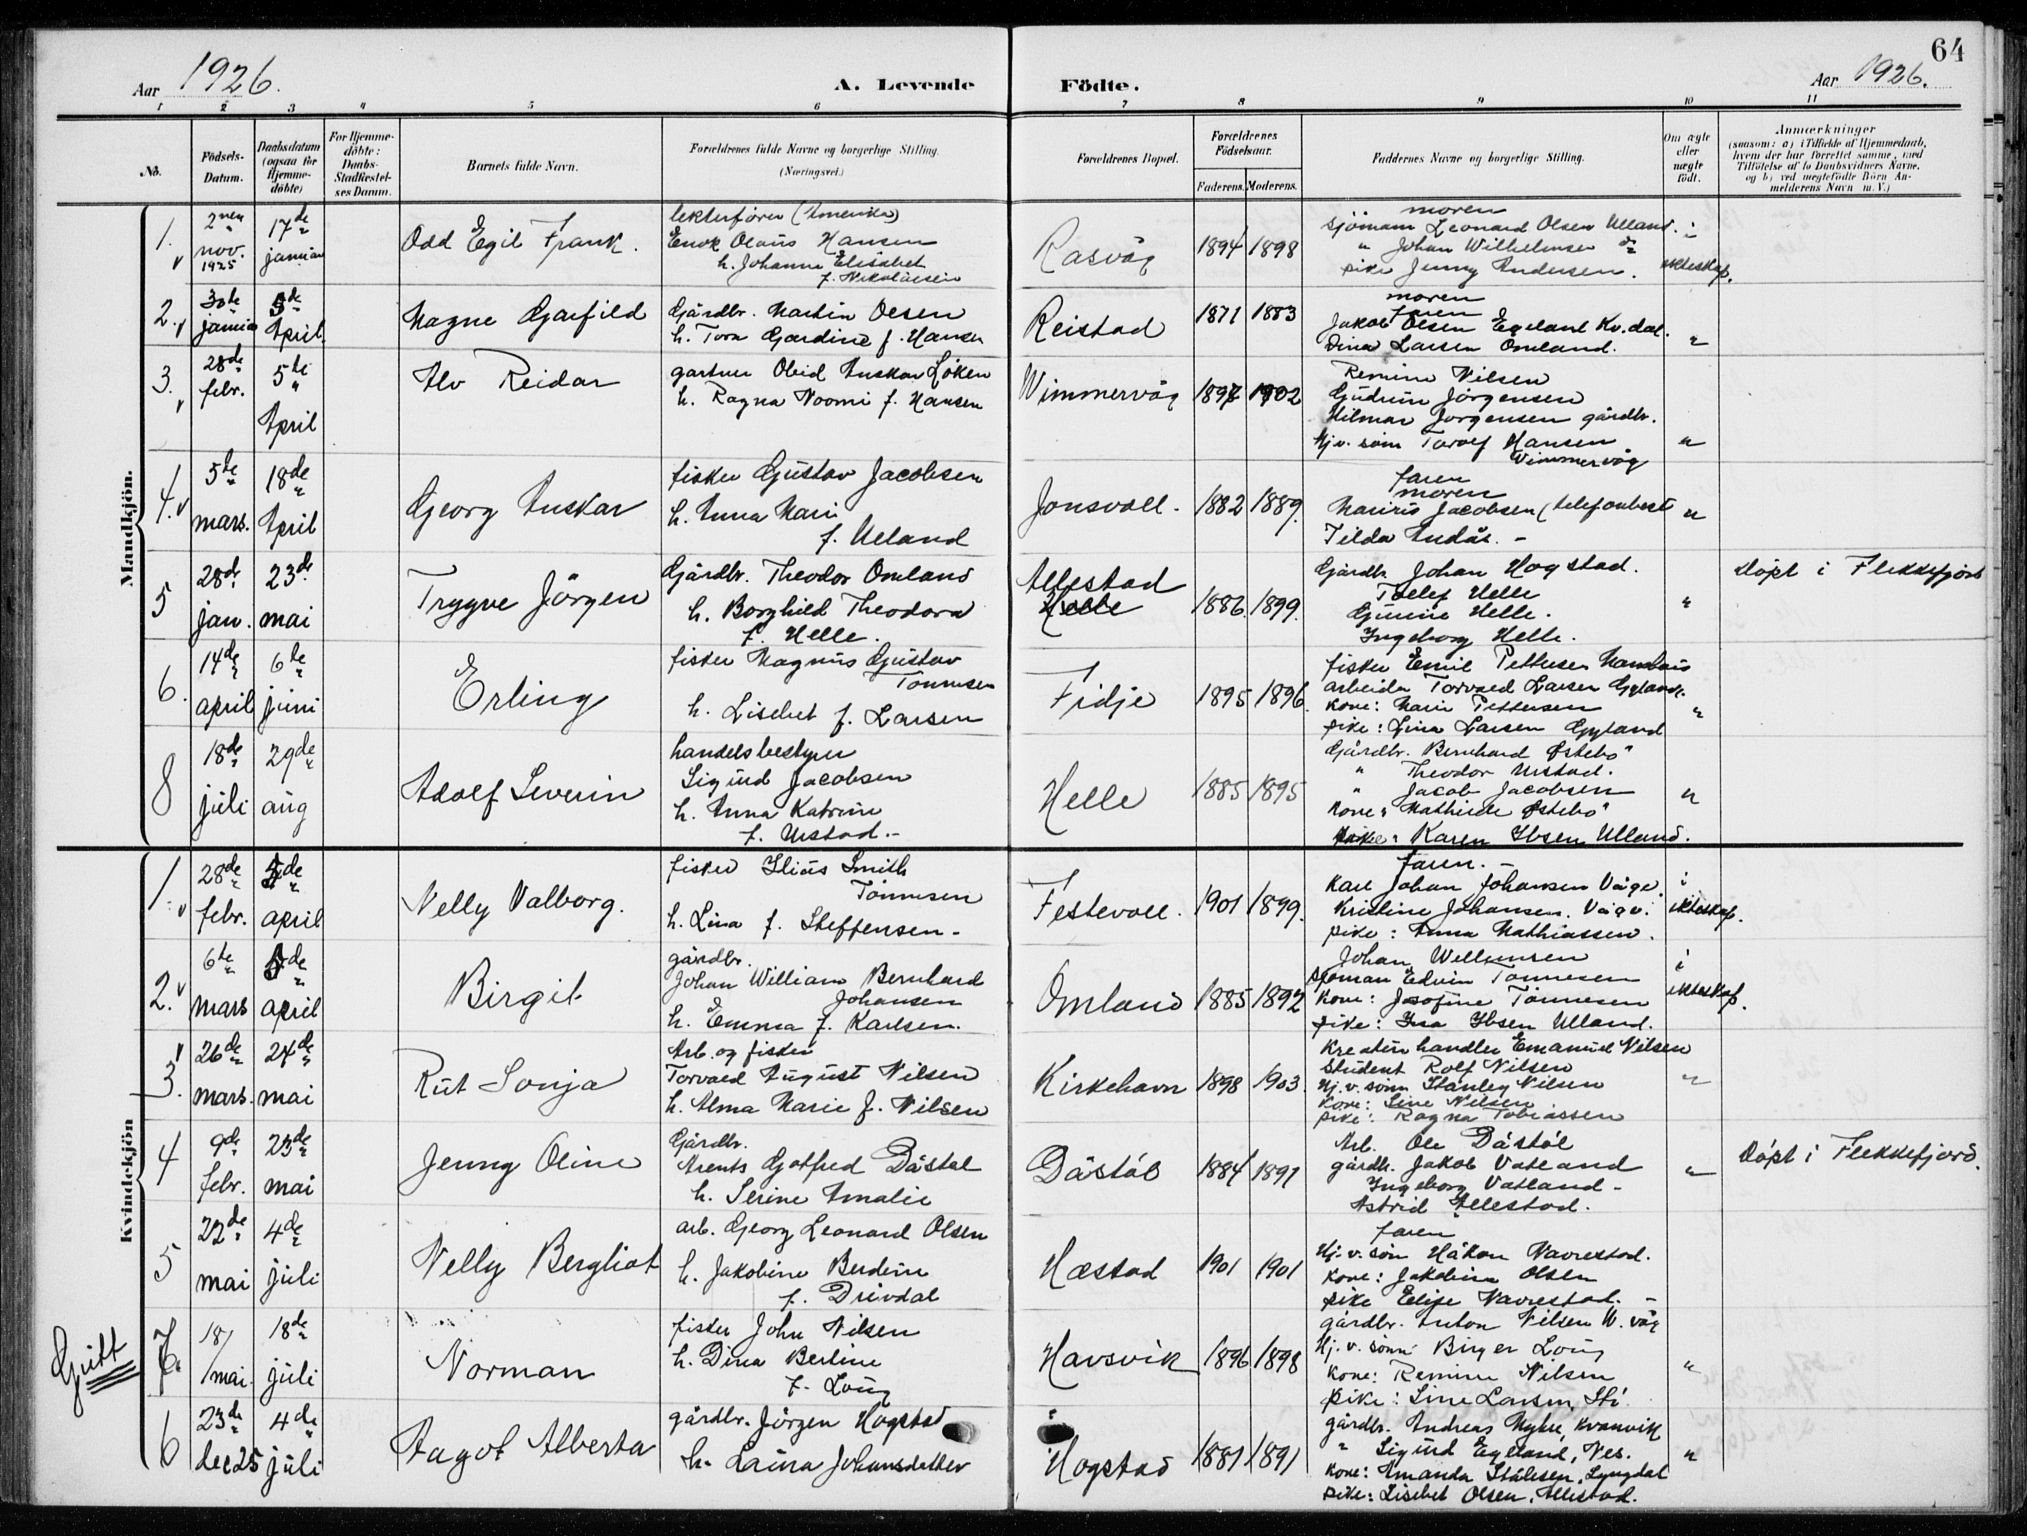 64
Aar 1926.
A. Levende Födte.
Aar 1926.
1 2 3 4 5 6 7 8 9 10 11
No.
Födsels-Datum.
Daabsdatum (ogsaa for Hjemme-döbte)
For Hjemme-döbte: Daabs-Stadfæstel-ses Datum.
Barnets fulde Navn.
Forældrenes fulde Navne og borgerlige Stilling. (Næringsvei.)
Forældrenes Bopæl.
Forældrenes Födselsaar.
Faderens. Moderens.
Faddernes Navne og borgerlige Stilling.
Om ægte eller uægte födt.
Anmærkninger
(saasom: a) i Tilfælde af Hjemmedaab, hvem der har forrettet samme, med Tilföielse af to Daabsvidners Navne, og b) ved uægtefödte Börn An-melderens Navn m. V.)
Mandkjön.
1. 2nen nov. 1925 17de januar
Odd Egil Frank.
(Amerika)
Enok Olaus Hansen
h. Johanne Elisabet
f. Nikolaisen
Rasvåg
1894 1898
moren
sjömann Leonard Olsen Ulland.
" Johan Wilhelmsen
pike Jenny Andersen.
i ekteskap.
2. 30te januar 5de April.
Magne Garfild
Gårdbr. Martin Olsen
h. Tora Gardine f. Hansen
Reistad
1871 1883
moren
faren
Jakob Olsen Egeland Kv.dal.
Dina Larsen Omland.
"
3. 28de febr. 5te April
Alv Reidar
gartner Obid Anskar Löken
h. Ragna Noomi f. Hansen
Wimmervåg
1897 1902
Remine Nilsen
Gudrun Jörgensen
Hilmar Jörgensen gårdbr.
Hj.v. sönn Torolf Hansen
Wimmervåg
"
4. 5te mars. 18de April
Georg Anskar
fisker Gustav Jacobsen
h. Anna Mari
f. Ueland
Jonsvoll.
1882 1889.
faren
moren
Marius Jacobsen (telefonbest
Tilda Andås. -
"
5 28de jan. 23de mai
Trygve Jörgen
Gårdbr. Theodor Omland
h. Borghild Theodora
f. Helle.
Allestad
Helle
1886. 1899.
Gårdbr. Johan Hogstad.
Tollef Helle
Gunine Helle.
Ingeborg Helle.
"
Döpt i Flekkefjord
6. 14de april 6te juni
Erling
fisker Magnus Gustav
Tönnesen
h. Lisebet f. Larsen
Fidje
1895 1896.
fisker Emil Pettersen
arbeider Torvald Larsen Gyland.
kone: Marie Pettersen
pike: Gina Larsen Gyland
"
8 18de juli 29de aug
Adolf Severin
handelsbestyrer
Sigurd Jacobsen
h. Anna Katrine
f. Urstad.-
Helle
1885 1895
Gårdbr. Bernhard Östebö
" Theodor Urstad.
" Jacob Jacobsen
kone: Mathilde Östebö
pike: Karen Ibsen Ulland.
"
Kvindekjön
1. 28de febr. 5de april
Nelly Valborg.
fisker Elias Smith
Tönnesen
h. Lina f. Steffensen-
Festevoll.
1901 1899.
faren. -
Karl Johan Johansen Våge.
Kristine Johansen. Våge.
pike: Anna Mathiassen.
i ekteskap.
2. 6te mars 5de april
Birgit
gårdbr.
Johan William Bernhard
Johansen
h. Emma f. Karlsen.
Omland
1885 1892
Johan Wellumsen
Sjöman Edvin Tönnesen
kone: Josefine Tönnesen
pike: Ina Ibsen Ulland.
i ekteskap.
3. 26de mars. 24de mai
Rut Sonja
Arb. og fisker
Torvald August Nilsen
h. Alma Marie f. Nilsen
Kirkehavn
1898 1903.
Kreaturhandler Emanuel Nilsen
Student Rolf Nilsen
Hj.v. sönn Stanley Nilsen
kone: Sine Nilsen
pike: Ragna Tobiassen
"
4 9de febr. 23de mai
Jenny Oline
Gårdbr.
Arents Gotfred Dåstöl
h. Serine Amalie
Dåstöl
1884 1891
Arb. Ole Dåstöl
gårdbr. Jakob Vatland
Ingeborg Vatland -
Astrid Allestad.
"
Döpt i Flekkefjord.
5 22de mai 4de juli
Nelly Bergliot
arb. Georg Leonard Olsen
h. Jakobine Berdine
f. Drivdal
Hæstad
1901 1901
faren
Hj.v. sön Håkon Navrestad.
kone: Jakobine Olsen
pike Elise Navrestad. -
Gutt
7. 18/mai. 18de juli
Norman
fisker John Nilsen
h. Dina Berline
f. Loug
Havsvik
1896 1898
gårdbr. Anton Nilsen W.våg
Hj.v. sönn: Birger Loug
kone: Remine Nilsen
pike: Sine Larsen, Sti.
"
6 23de dec 25 4de juli
Aagot Alberta
gårdbr. Jörgen Hogstad
h. Laura Johansdatter
Hogstad
1881 1891
gårdbr. Andreas Kvanvik
" Sigurd Egeland, Nes.
kone: Amanda Stålesen, Lyngdal
pike: Lisebet Olsen, Allestad.
"